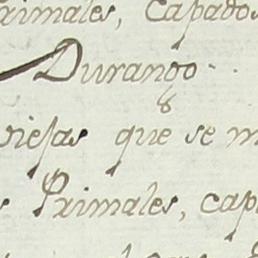 Primales, Capados
Durango.
8
viejas que se m
s Primales, cap